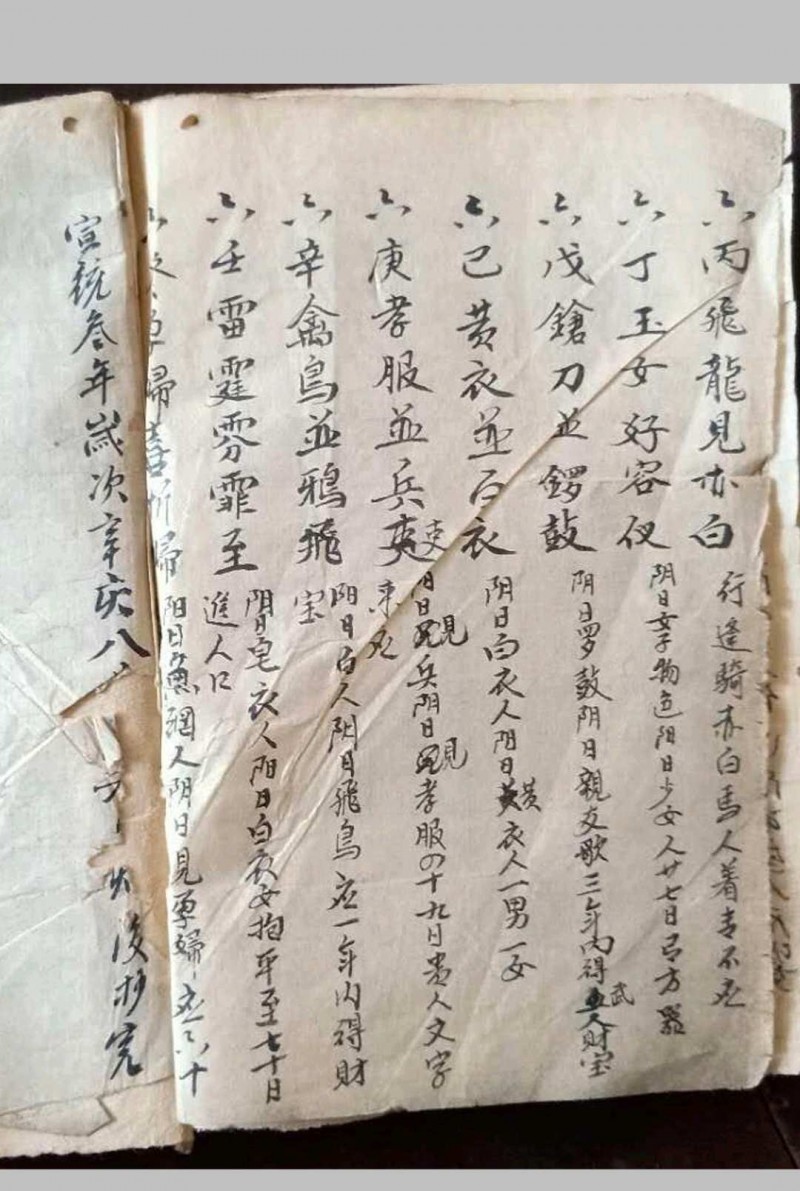 六丙飛龍見赤白
行逢騎赤白馬人着青不应
六丁玉女好容仪
阴日女子物色阳日少女人廿七日
六戊鎗刀並鑼鼓
阴日锣鼓阴日親友歌三年内得武人財宝
六己黄衣並白衣
阴日白衣人阳日黄衣人一男一女
六庚孝服並兵吏
阳日見兵阴日見孝服四十九日贵人文字
来应
六辛禽鳥並鴉飛
阳日白人阴日飛鳥应一年内得財
宝
六壬雷霆雰霏至
阴日皂衣人阳日白衣女抱 至七十日
進人口
六 孕婦喜 婦
阳日漁網人阴日見孕婦应六十
宣統叁年歲次辛亥八 後抄完